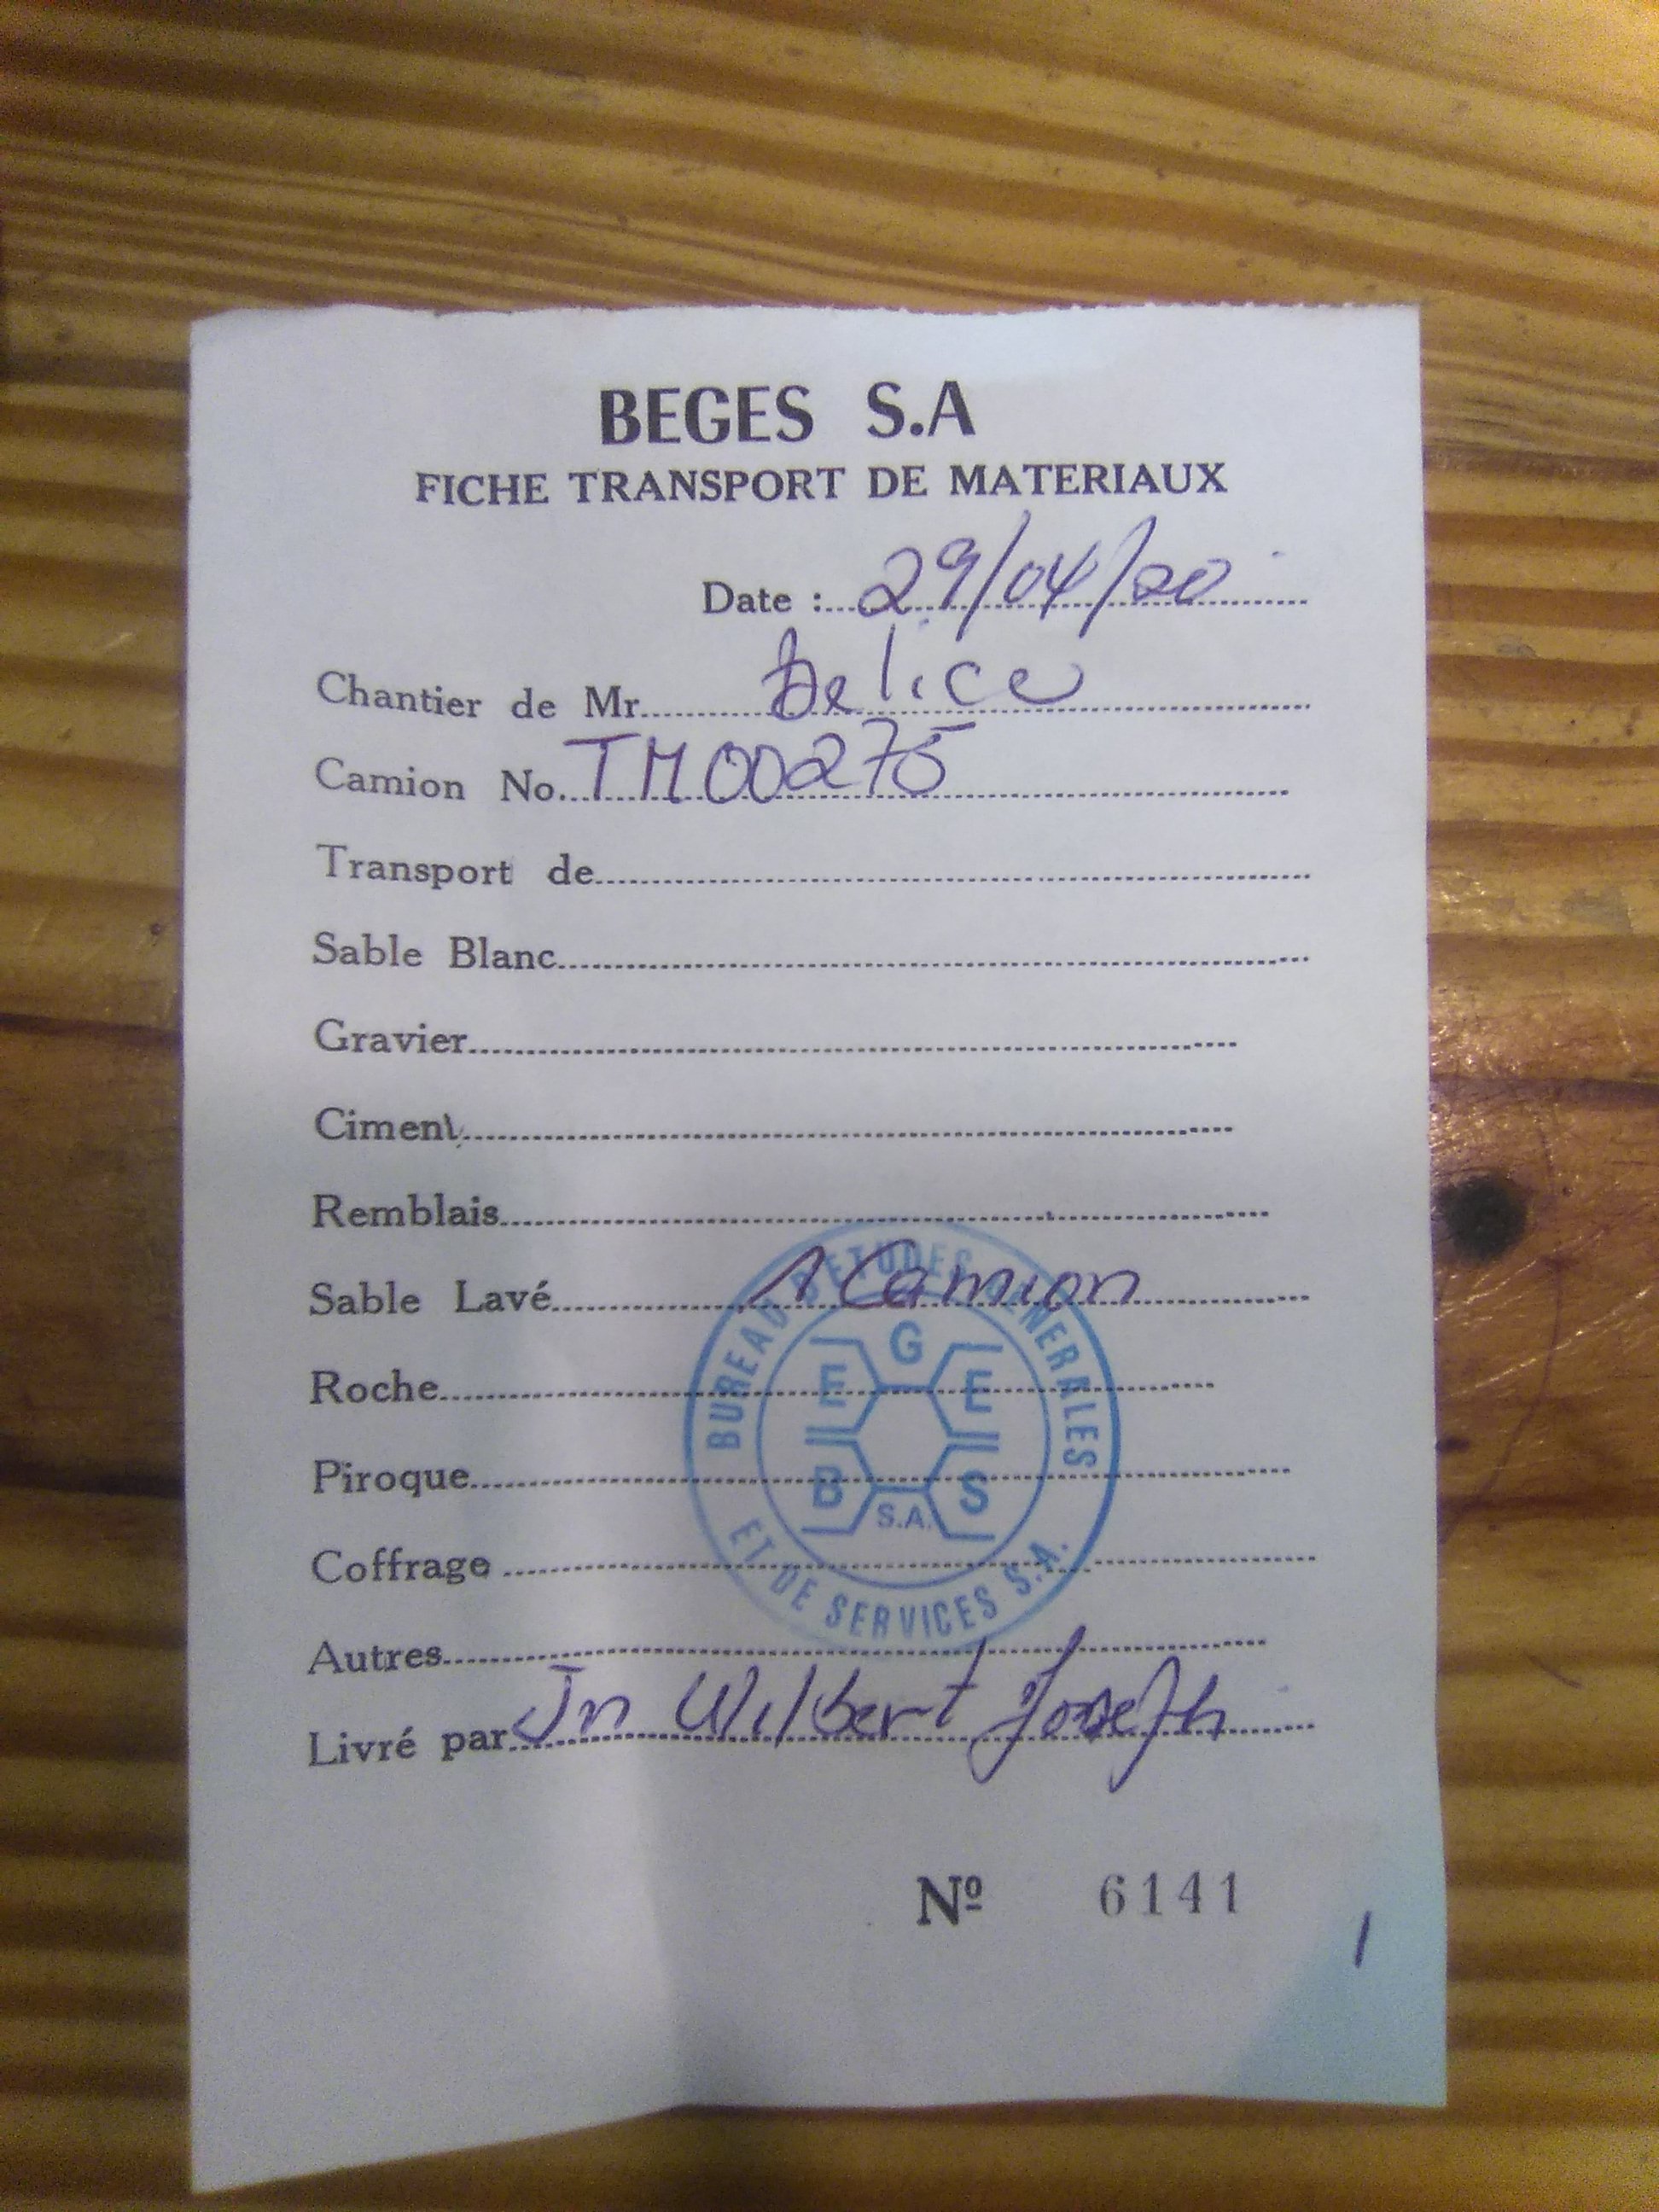 BEGES S.A
FICHE TRANSPORT DE MATERIAUX
Date : 29/04/20
Chantier de Mr. Delice
Camion No. TM00275
Transport de
Sable Blanc
Gravier
Ciment
Remblais
Sable Lavé 1 Camion
Roche
Piroque
Coffrage
Autres
Livré par Jn Wilbert Joseph
Nº 6141
BUREAU D'ETUDES GENERALES
ET DE SERVICES S.A.
B E G E S
S.A.